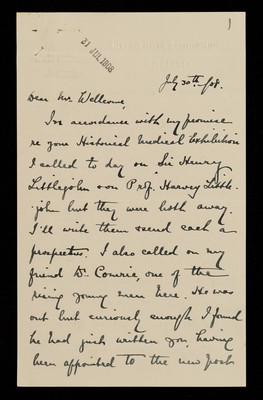 1
21 JUL 1908
July 20th - /08.
Dear Mr. Wellcome,
In accordance with my promise
re your Historical Medical Exhibition
I called to day on Sir Henry
Littlejohn & on Prof. Harvey Little-
-john but they were both away.
I'll write them & send each a
prospectus. I also called on my
friend Dr. Comrie, one of the
rising young men here. He was
out but curiously enough I found
he had just written you, having
been appointed to the new post